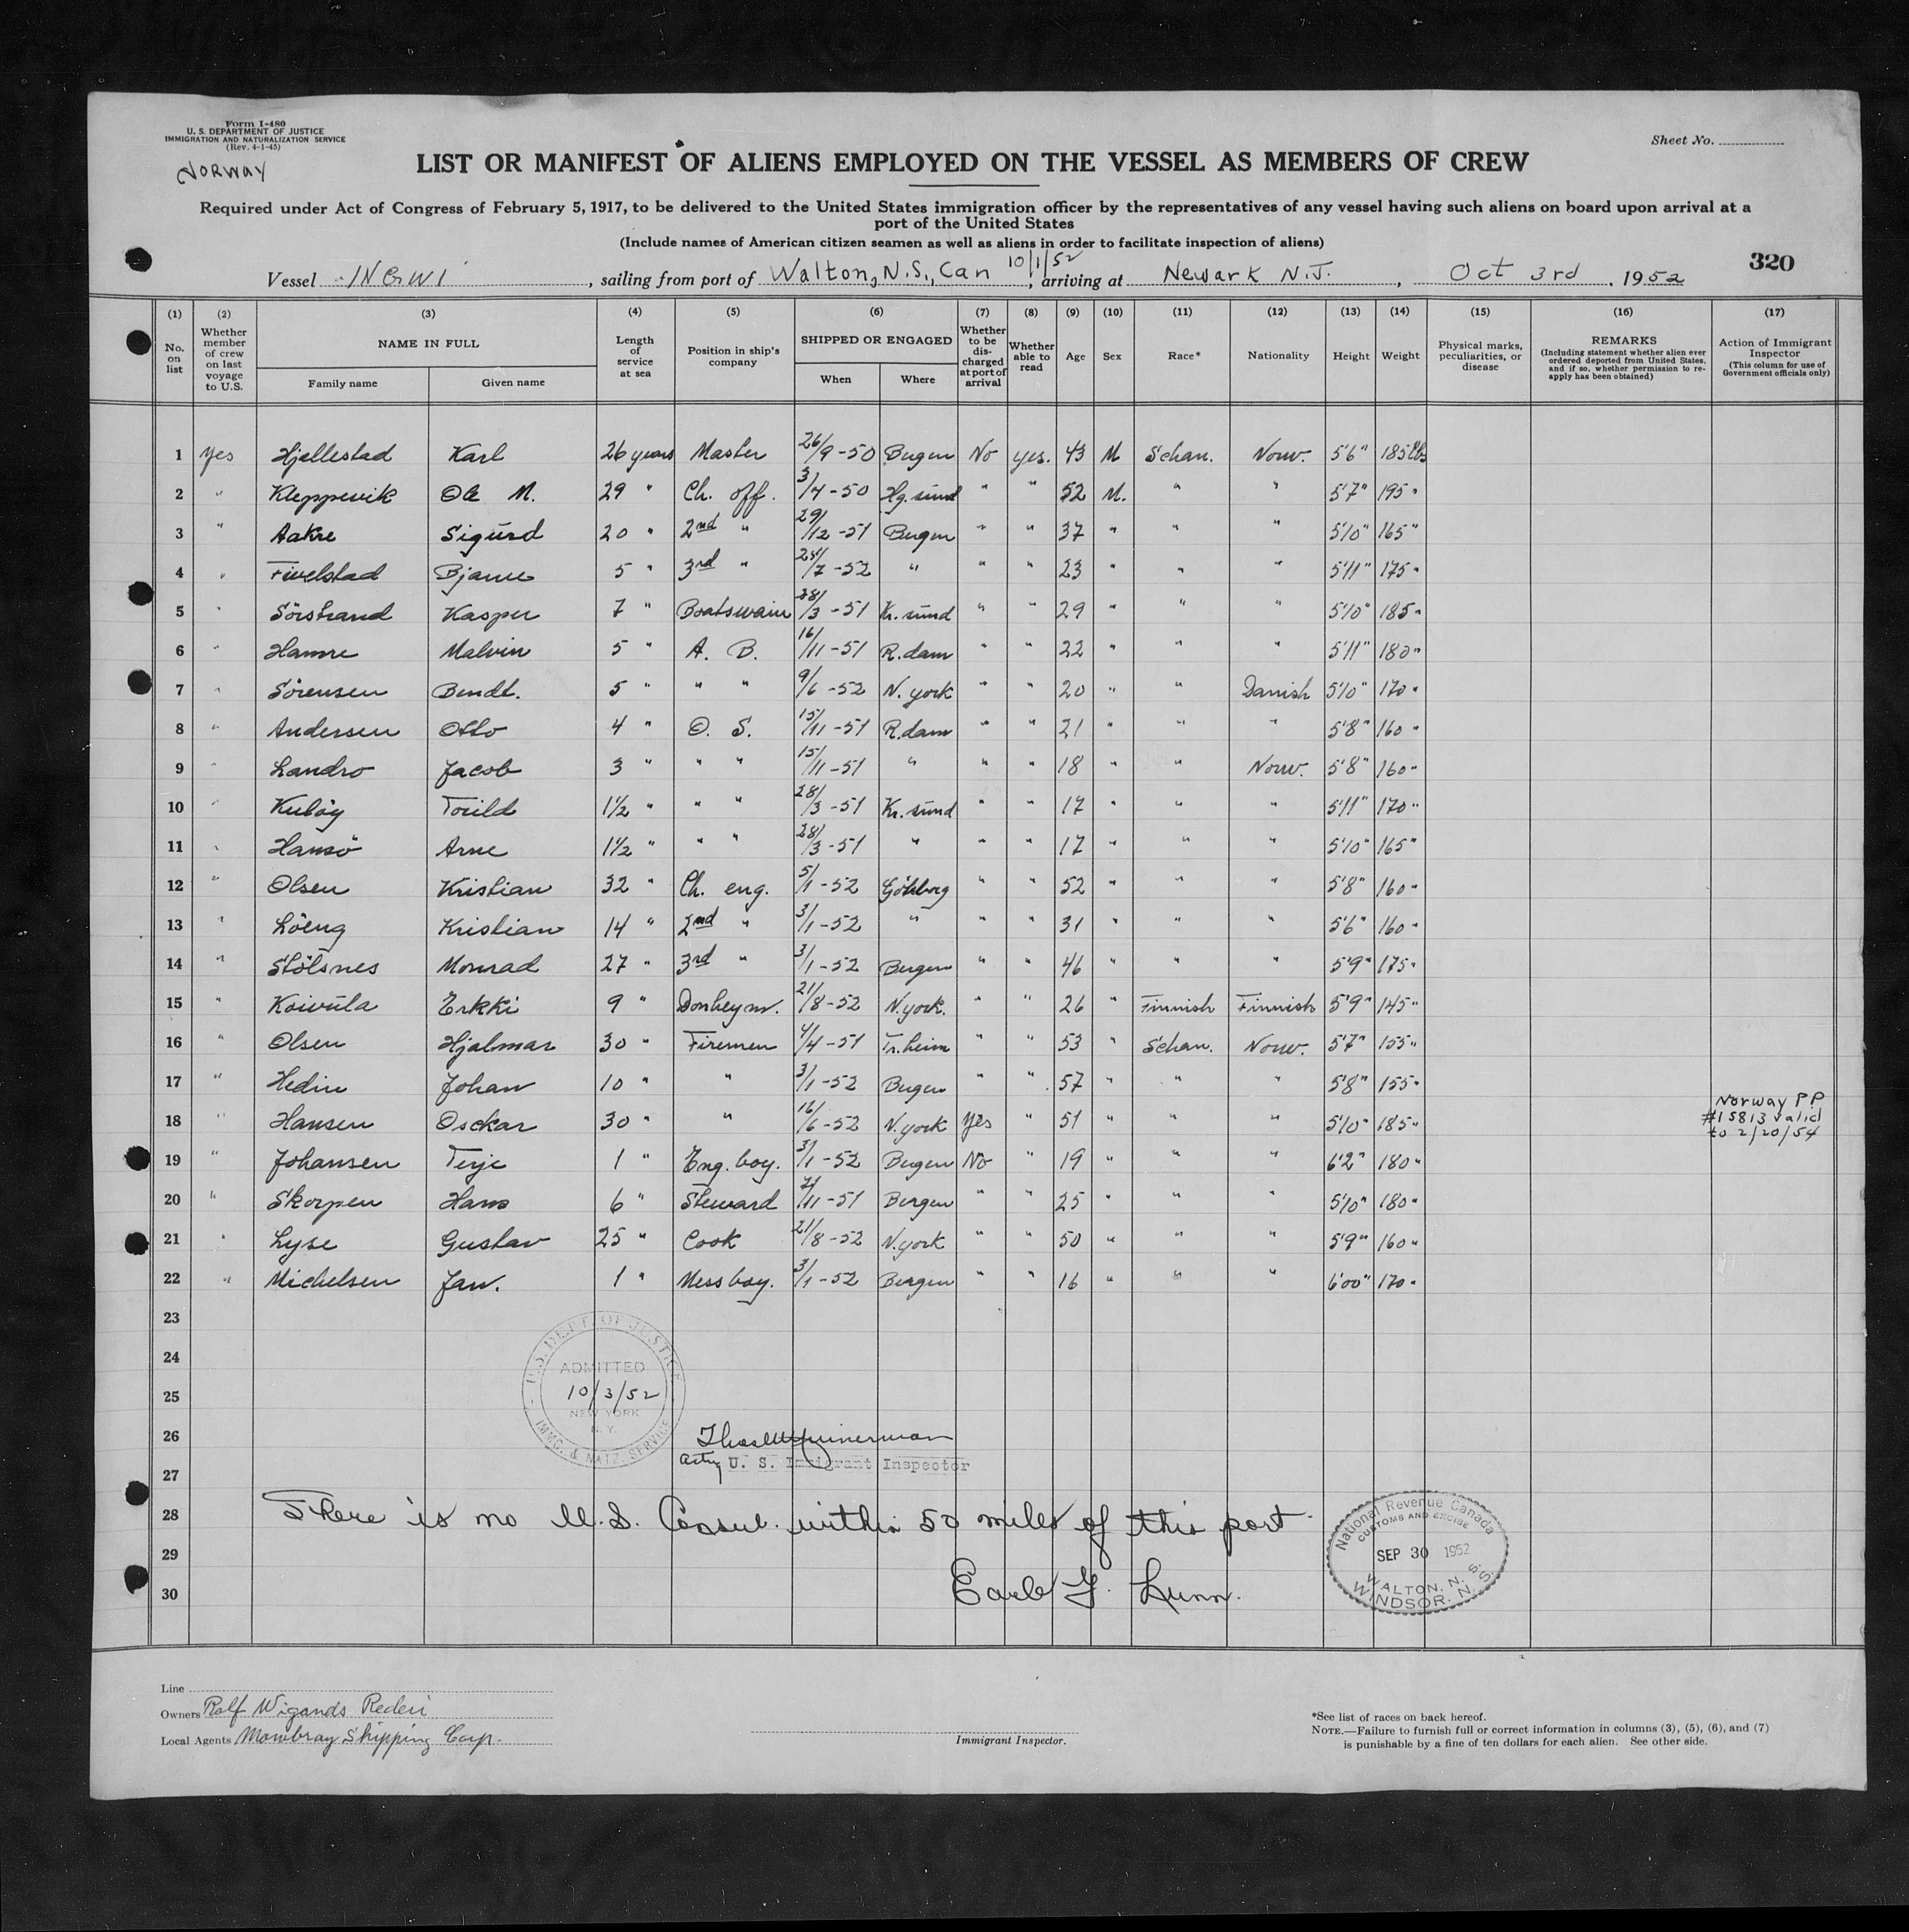 Form I-480
U. S. DEPARTMENT OF JUSTICE
IMMIGRATION AND NATURALIZATION SERVICE
(Rev. 4-1-45)
NORWAY
Sheet No.
LIST OR MANIFEST OF ALIENS EMPLOYED ON THE VESSEL AS MEMBERS OF CREW
Required under Act of Congress of February 5, 1917, to be delivered to the United States immigration officer by the representatives of any vessel having such aliens on board upon arrival at a
port of the United States
(Include names of American citizen seamen as well as aliens in order to facilitate inspection of aliens)
320
Vessel INGWI, sailing from port of Walton, N.S., Can 10/1/52, arriving at Newark N.J., Oct 3rd, 1952
(1) (2) (3) (4) (5) (6) (7) (8) (9) (10) (11) (12) (13) (14) (15) (16) (17)
No. on list
Whether member of crew on last voyage to U.S.
NAME IN FULL
Family name Given name
Length of service at sea
Position in ship's company
SHIPPED OR ENGAGED
When Where
Whether to be discharged at port of arrival
Whether able to read
Age
Sex
Race*
Nationality
Height
Weight
Physical marks, peculiarities, or disease
REMARKS
(Including statement whether alien ever ordered deported from United States, and if so, whether permission to re-apply has been obtained)
Action of Immigrant Inspector
(This column for use of Government officials only)
1 Yes Hjellestad Karl 26 years Master 26/9-50 Bergen No yes. 43 M Schan. Norw. 5'6" 185 lbs
2 " Kleppevik Ole M. 29 " Ch. off. 3/4-50 Hg.sund " " 52 M. " " 5'7" 195 "
3 " Aakre Sigurd 20 " 2nd " 29/12-51 Bergen " " 37 " " " 5'10" 165 "
4 " Fivelstad Bjarne 5 " 3rd " 24/7-52 " " " 23 " " " 5'11" 175 "
5 " Sörstrand Kasper 7 " Boatswain 28/3-51 Kr.sund " " 29 " " " 5'10" 185 "
6 " Hamre Malvin 5 " A. B. 16/11-51 R.dam " " 22 " " " 5'11" 180 "
7 " Sörensen Bendt. 5 " " " 9/6-52 N.york " " 20 " " Danish 5'10" 170 "
8 " Andersen Otto 4 " O. S. 15/11-51 R.dam " " 21 " " " 5'8" 160 "
9 " Landro Jacob 3 " " " 15/11-51 " " " 18 " " Norw. 5'8" 160 "
10 " Kuböy Torild 1½ " " " 28/3-51 Kr.sund " " 17 " " " 5'11" 170 "
11 " Hamsö Arne 1½ " " " 28/3-51 " " " 17 " " " 5'10" 165 "
12 " Olsen Kristian 32 " Ch. eng. 5/1-52 Götborg " " 52 " " " 5'8" 160 "
13 " Löeng Kristian 14 " 2nd " 3/1-52 " " " 31 " " " 5'6" 160 "
14 " Stölsnes Monrad 27 " 3rd " 3/1-52 Bergen " " 46 " " " 5'9" 175 "
15 " Koivula Erkki 9 " Donkeym. 21/8-52 N.york. " " 26 " Finnish Finnish 5'9" 145 "
16 " Olsen Hjalmar 30 " Firemen 4/4-51 Tr.heim " " 53 " Schan. Norw. 5'7" 155 "
17 " Hedin Johan 10 " " 3/1-52 Bergen " " 57 " " " 5'8" 155 "
18 " Hansen Osckar 30 " " 16/6-52 N.york Yes " 51 " " " 5'10" 185 " Norway PP
#15813 valid
to 2/20/54
19 " Johansen Terje 1 " Eng. boy. 3/1-52 Bergen No " 19 " " " 6'2" 180 "
20 " Skorpen Hans 6 " Steward /11-51 Bergen " " 25 " " " 5'10" 180 "
21 " Lyse Gustav 25 " Cook 21/8-52 N.york " " 50 " " " 5'9" 160 "
22 " Michelsen Jan. 1 " Mess boy. 3/1-52 Bergen " " 16 " " " 6'00" 170 "
23
24
25
26
27
28
29
30
U.S. DEPT. OF JUSTICE
ADMITTED
10/3/52
NEW YORK
N.Y.
IMMG. & NATZ. SERVICE
Acting U. S. Immigrant Inspector
There is no U.S. Consul. within 50 miles of this port.
Earle Y. Lunn.
National Revenue Canada
CUSTOMS AND EXCISE
SEP 30 1952
WALTON, N. S.
WINDSOR, N. S.
Line
Owners Rolf Wigands Rederi
Local Agents Mowbray Shipping Corp.
Immigrant Inspector.
*See list of races on back hereof.
NOTE.—Failure to furnish full or correct information in columns (3), (5), (6), and (7)
is punishable by a fine of ten dollars for each alien. See other side.